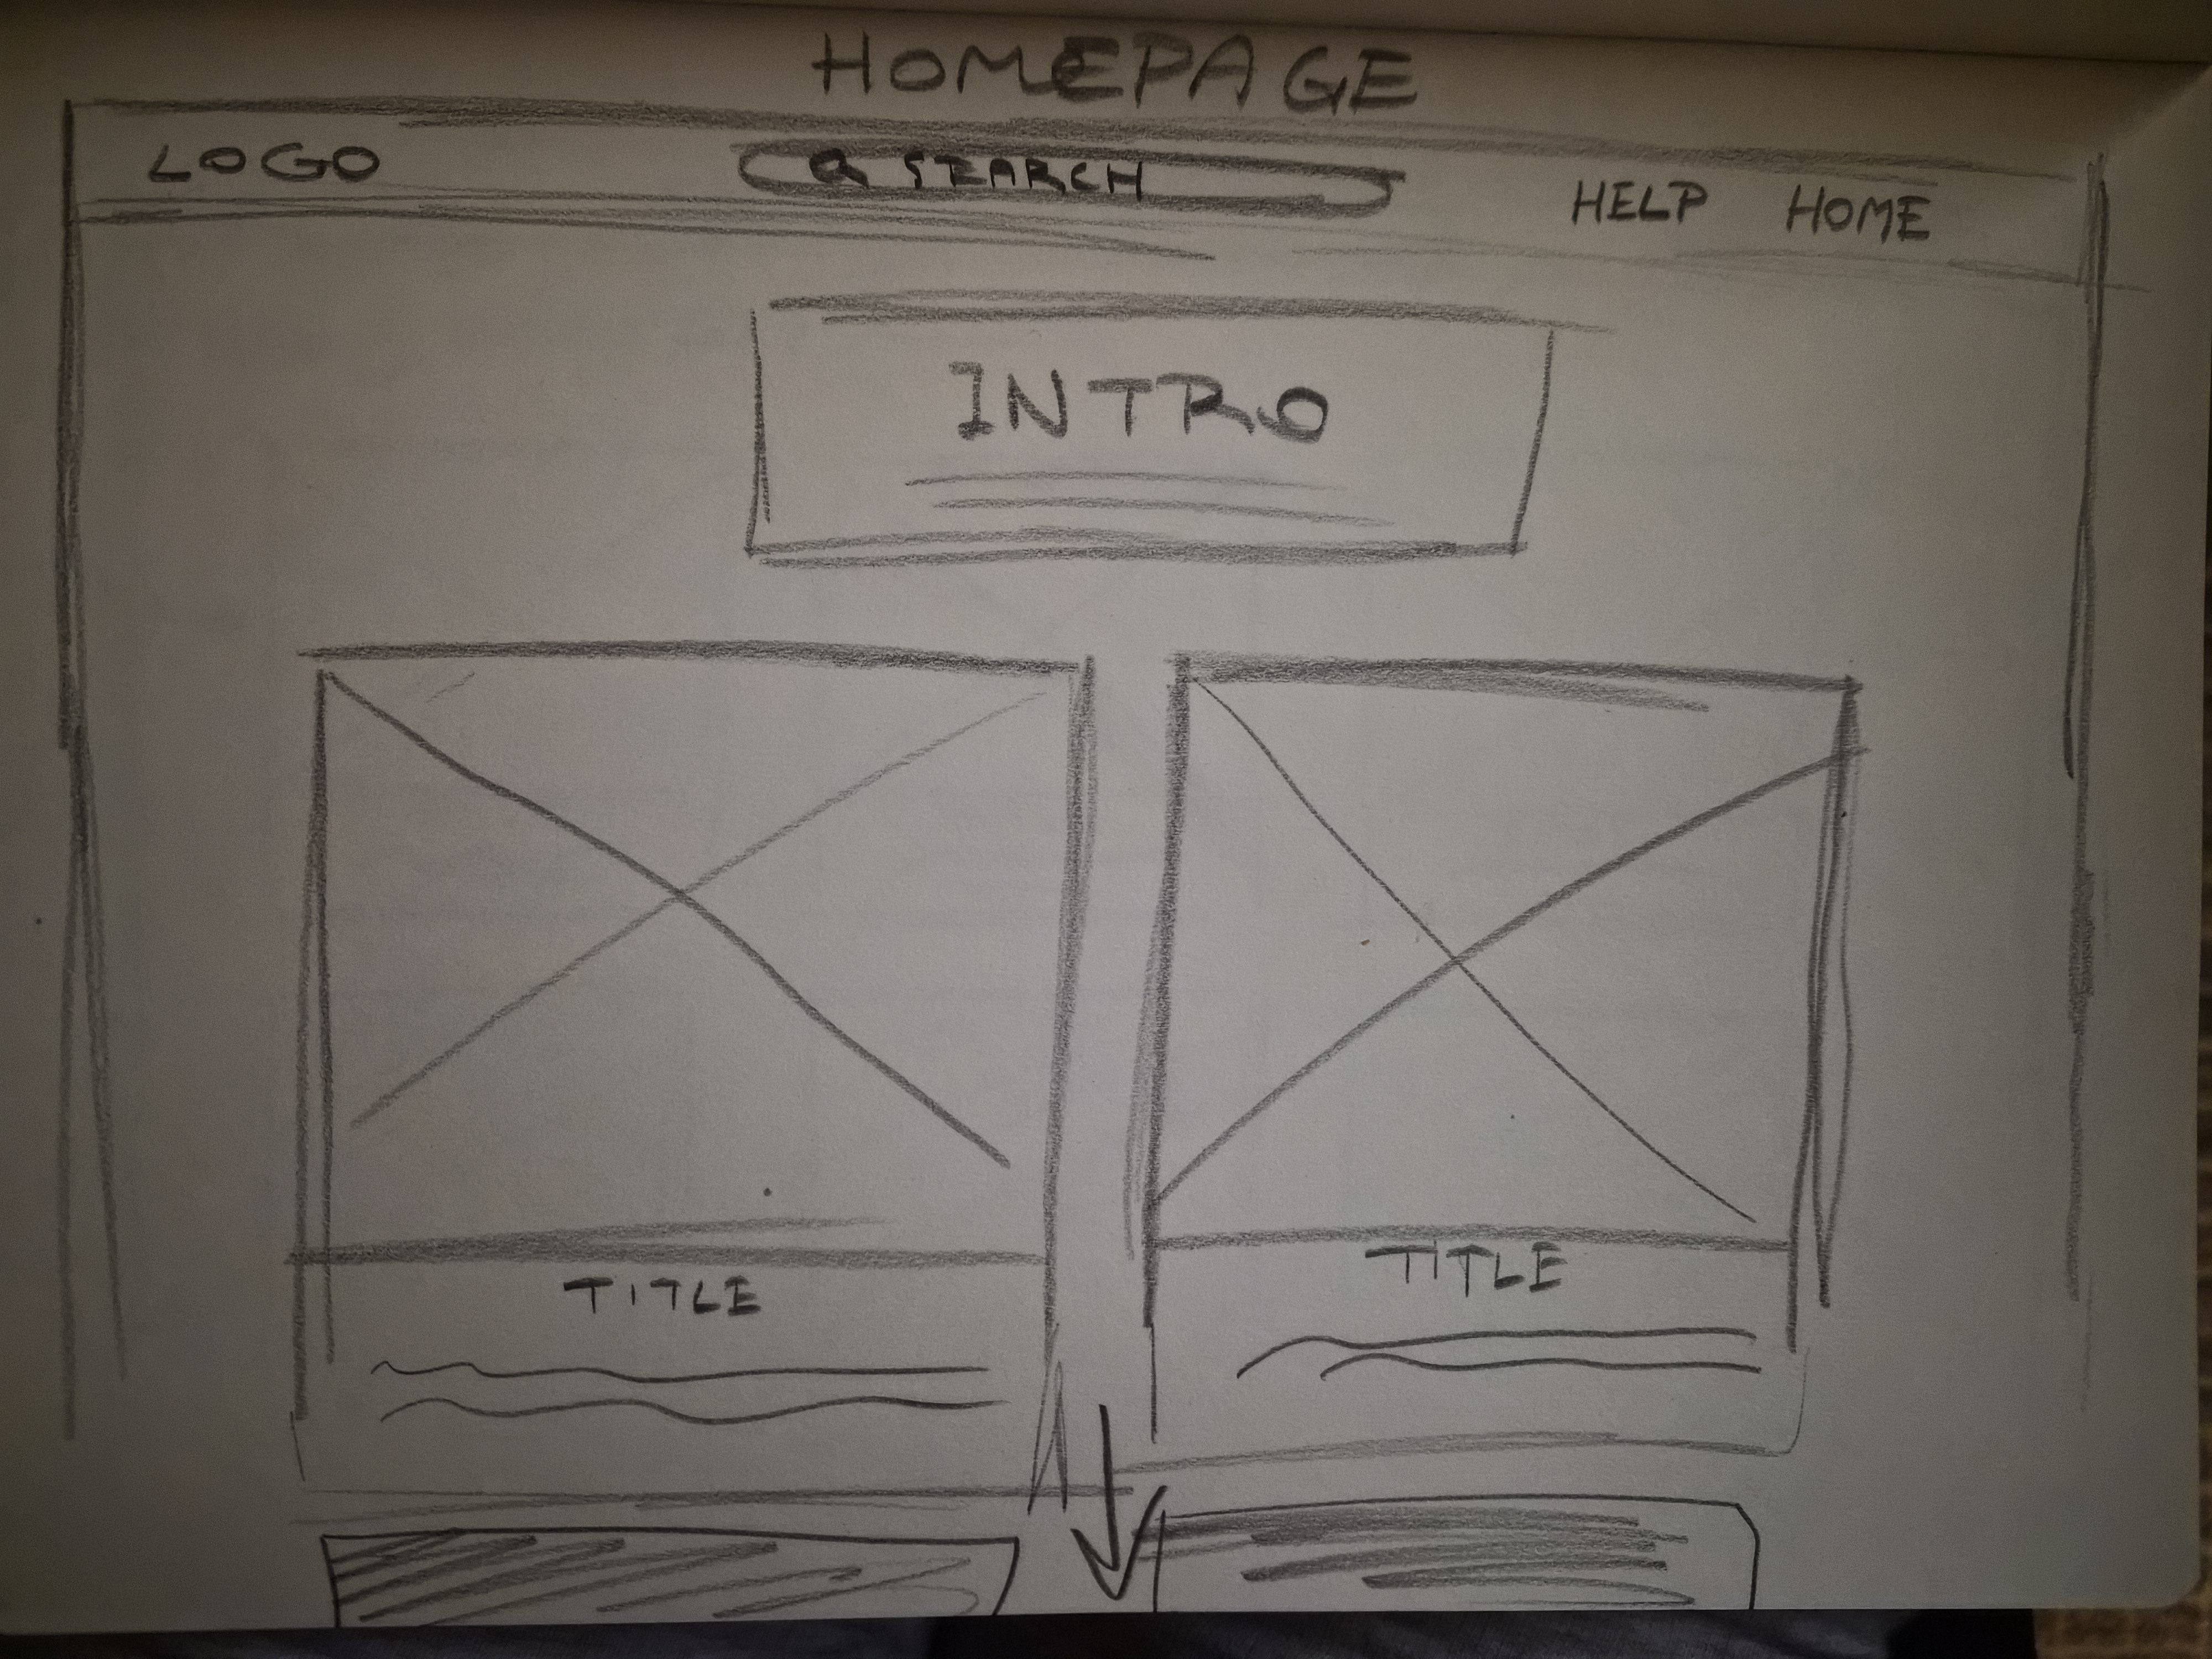 HOMEPAGE
LOGO
SEARCH
HELP HOME
INTRO
TITLE
TITLE